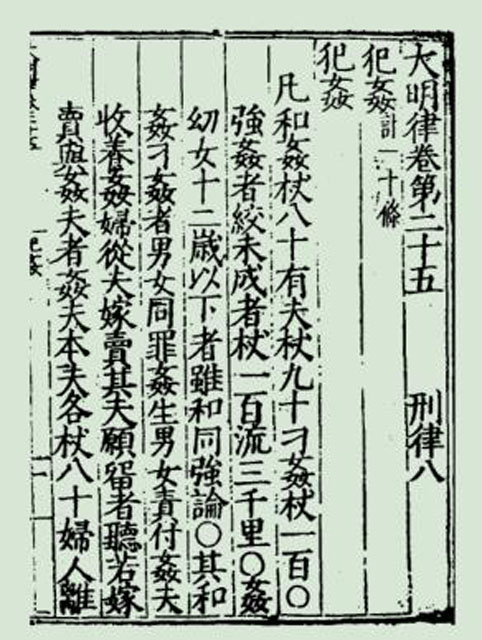 大明律卷第二十五 刑律八
犯姦計一十條
犯姦
凡和姦杖八十有夫杖九十刁姦杖一百〇
強姦者絞未成者杖一百流三千里〇姦
幼女十二歲以下者雖和同強論〇其和
姦刁姦者男女同罪姦生男女責付姦夫
收養姦婦從夫嫁賣其夫願留者聽若嫁
賣與姦夫者姦夫本夫各杖八十婦人離
犯姦